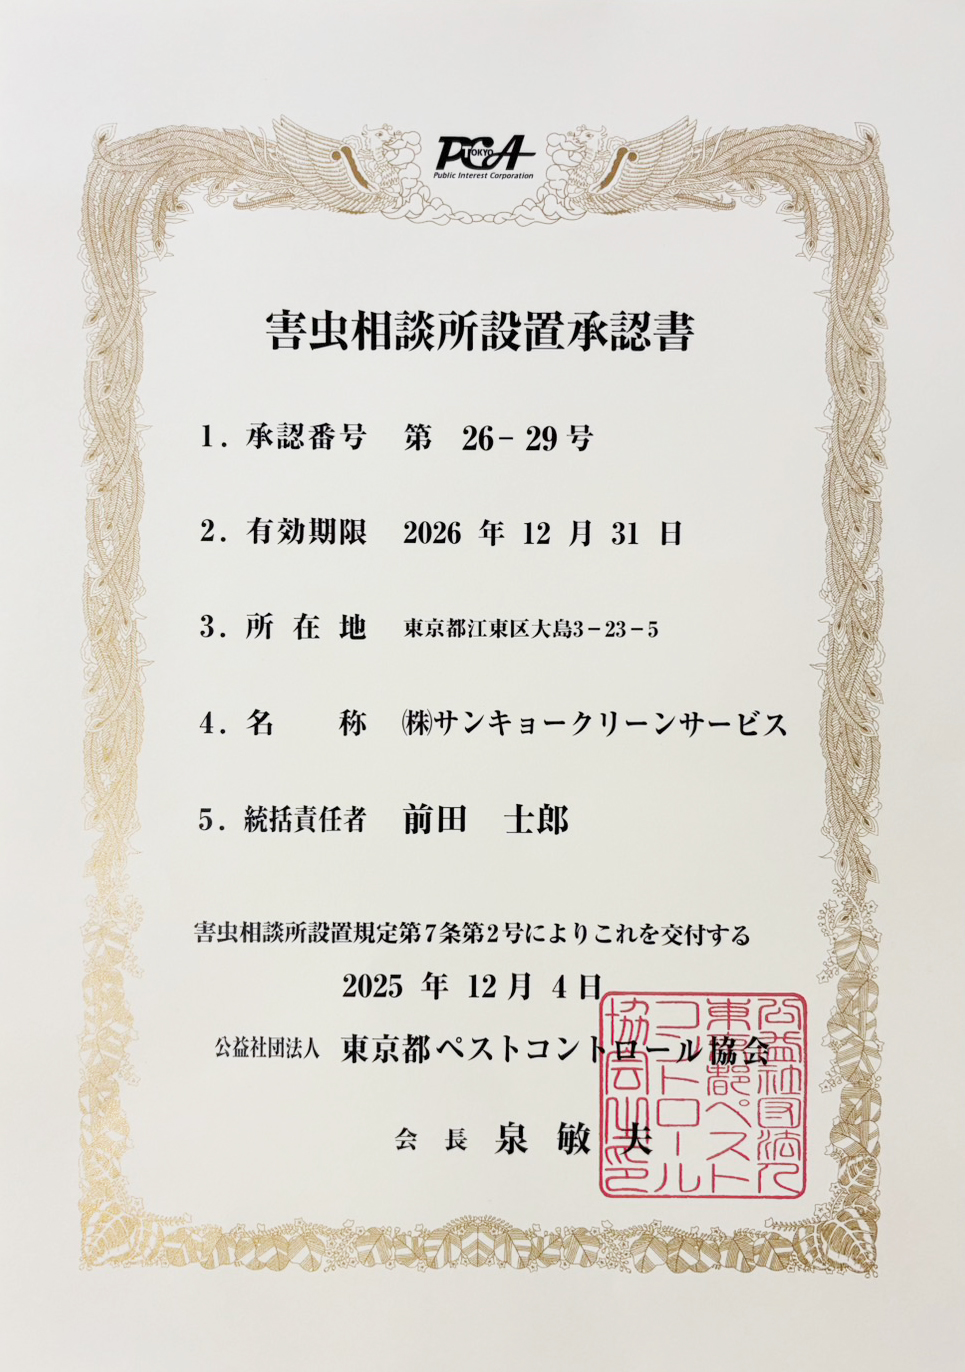 PCA TOKYO
Public Interest Corporation
害虫相談所設置承認書
1. 承認番号 第 26-29号
2. 有効期限 2026 年 12 月 31 日
3. 所在地 東京都江東区大島3-23-5
4. 名称 ㈱サンキョークリーンサービス
5. 統括責任者 前田 士郎
害虫相談所設置規定第7条第2号によりこれを交付する
2025 年 12月 4日
公益社団法人 東京都ペストコントロール協会
会長 泉 敏 夫
公益社団法人
東京都ペスト
コントロール
協会之印